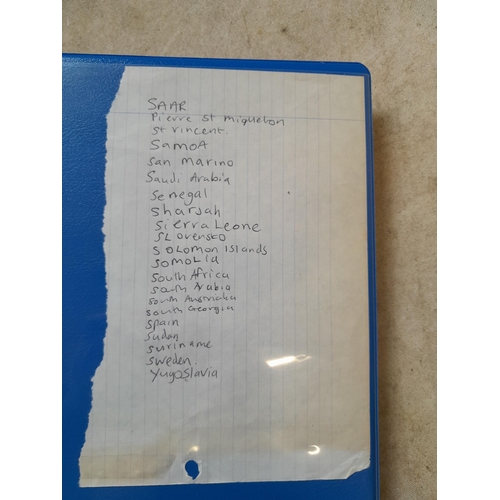 SAAR
Pierre St miquelon
St Vincent.
SAMOA
San Marino
Saudi Arabia
Senegal
Sharjah
Sierra Leone
SLovensko
SOLOMON Islands
SOMOLIA
South Africa
South Arabia
South Australia
South Georgia
Spain
Sudan
Suriname
Sweden
Yugoslavia